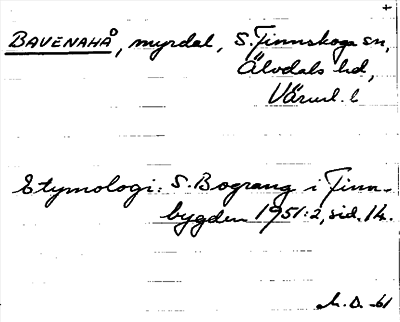 +
BAVENAHÅ, myrdal, S. Finnskoga sn,
Älvdals hd,
Värml. l
Etymologi: S. Bograng i Finn-
bygden 1951:2, sid. 14.
M.D. -61